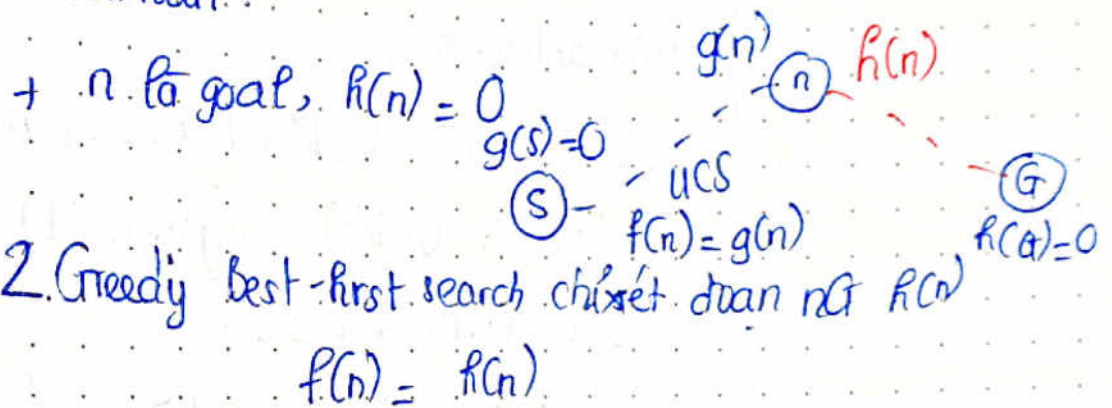 + n là goal, h(n) = 0
g(n) n h(n)
g(S)=0
S UCS G
f(n) = g(n) h(G)=0
2. Greedy best-first search chỉ xét đoạn nG h(n)
f(n) = h(n)